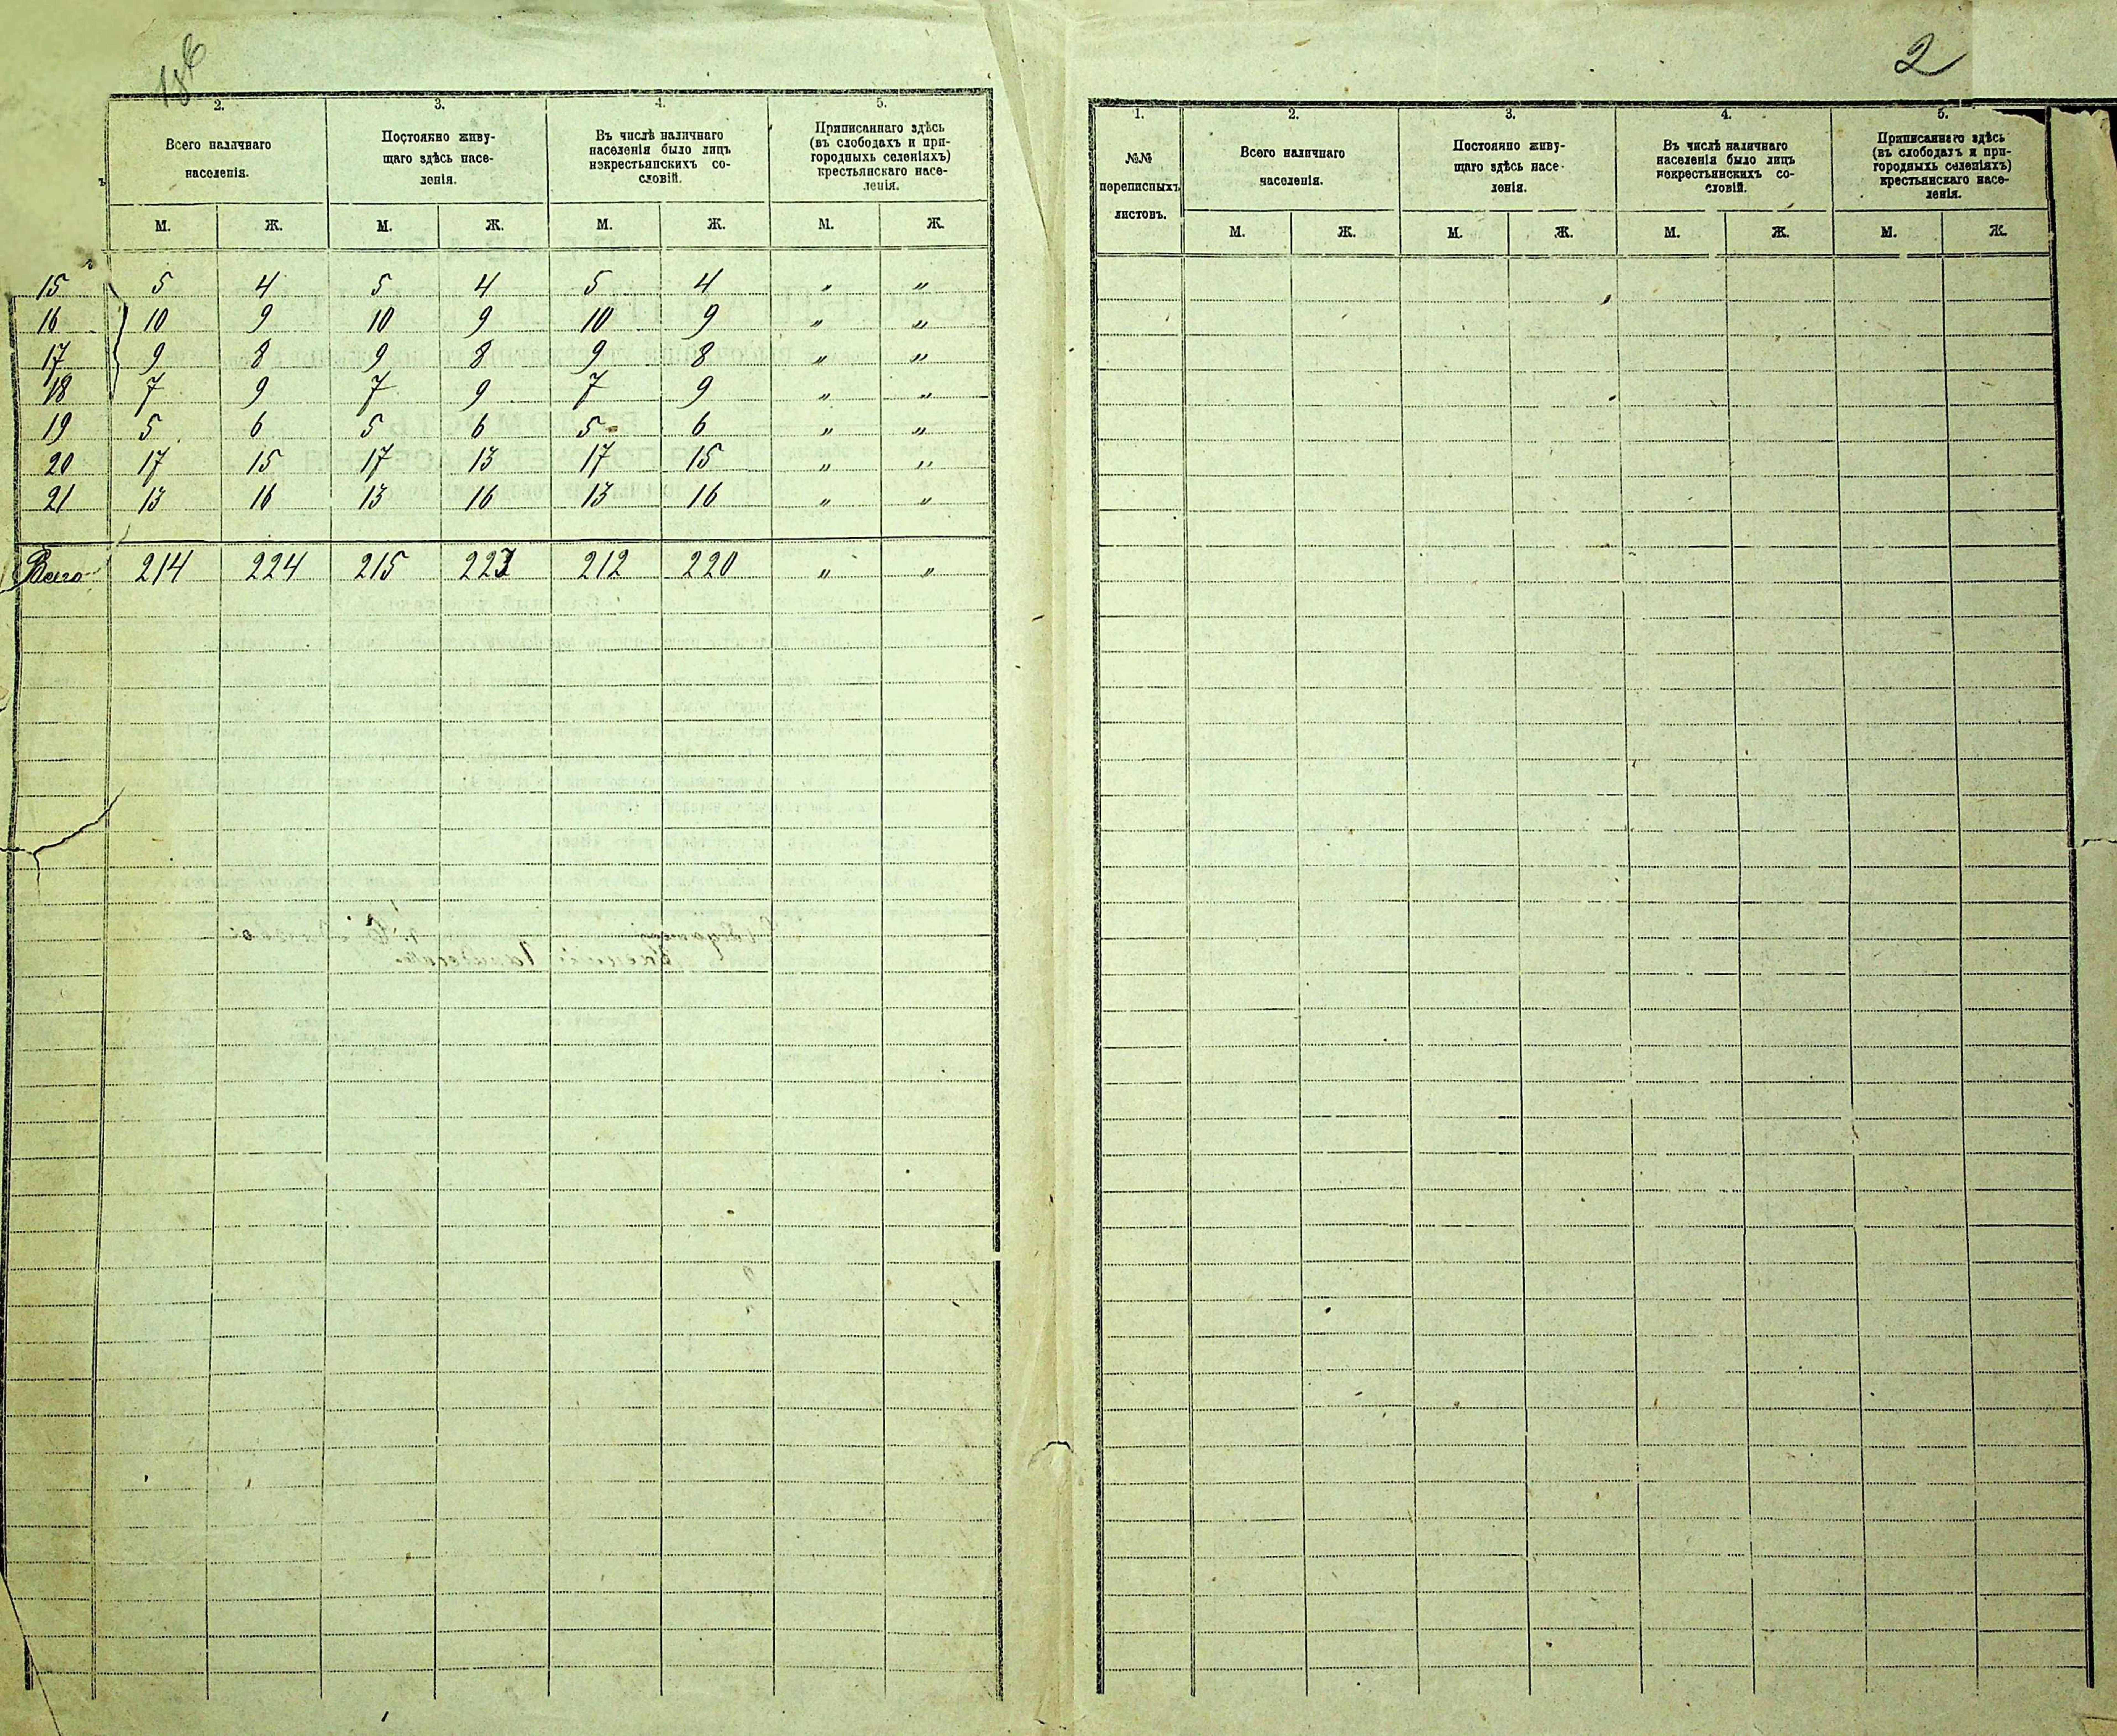 2. 3. 4. 5.
Всего наличнаго населенія. Постоянно живу-щаго здѣсь насе-ленія. Въ числѣ наличнаго населенія было лицъ нэкрестьянскихъ со-словій. Приписаннаго здѣсь (въ слободахъ и при-городныхъ селеніяхъ) крестьянскаго насе-ленія.
ъ
М. Ж. М. Ж. М. Ж. М. Ж.
15 5 4 5 4 5 4 " "
16 10 9 10 9 10 9 " "
17 9 8 9 8 9 8 " "
18 7 9 7 9 7 9 " "
19 5 6 5 6 5 6 " "
20 17 15 17 13 17 15 " "
21 13 16 13 16 13 16 " "
Всего 214 224 215 223 212 220 " "
2
1. 2. 3. 4. 5.
№№ переписныхъ листовъ. Всего наличнаго населенія. Постоянно живу-щаго здѣсь насе-ленія. Въ числѣ наличнаго населенія было лицъ некрестьянскихъ со-словій. Приписаннаго здѣсь (въ слободахъ и при-городныхъ селеніяхъ) крестьянскаго насе-ленія.
М. Ж. М. Ж. М. Ж. М. Ж.